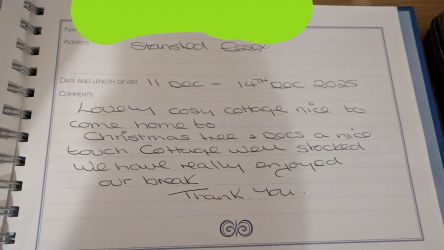 Address Stansted Essex.
Date and length of visit 11 Dec - 14TH Dec 2025
Comments
Lovely cosy cottage nice to
come home to
Christmas tree & Decs a nice
touch Cottage well stocked
We have really enjoyed
our break
Thank You.